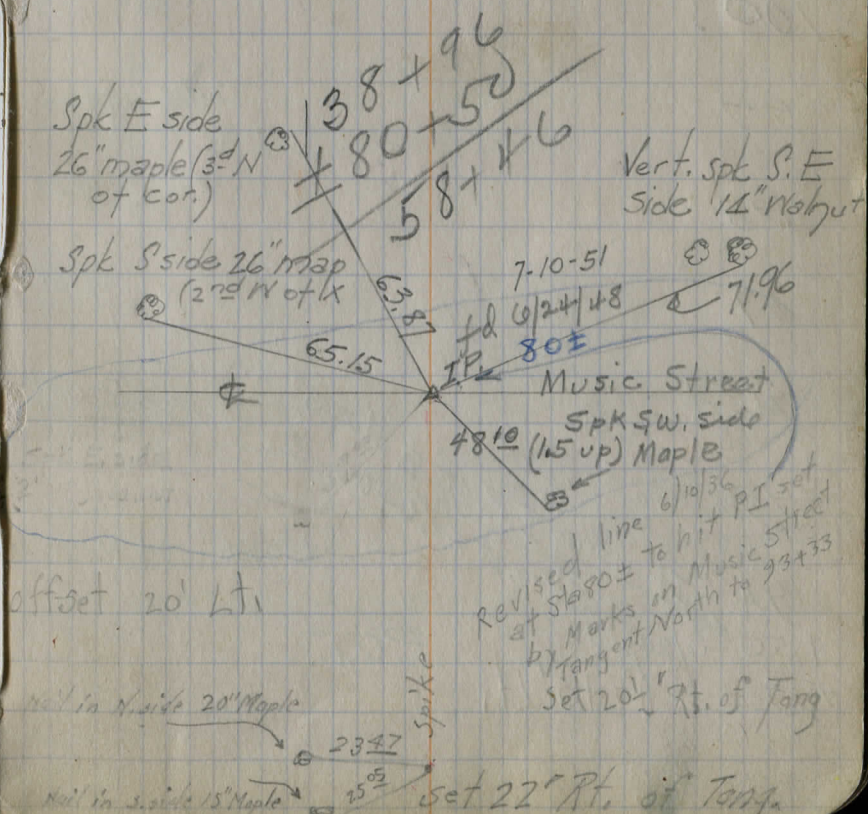 38+96
80+50
58+46
Spk E side
26" maple (3rd N
of cor.)
Vert. spk S.E
side 14" Walnut
Spk S side 26" map
(2nd N of
63.87
65.15
7-10-51
fd 6/24/48
80±
71.96
I.P.
Music Street
℄
48 10
Spk SW. side
(1.5 up) Maple
Revised line 6/10/36
at Sta 80± to hit PI set
by Marks on Music Street
Tangent North to 93+33
offset 20' Lt.
Set 20½" Rt. of Tang
Spike
Nail in N. side 20" Maple
23 47
25 05
Nail in S. side 15" Maple
Set 22" Rt. of Tang.